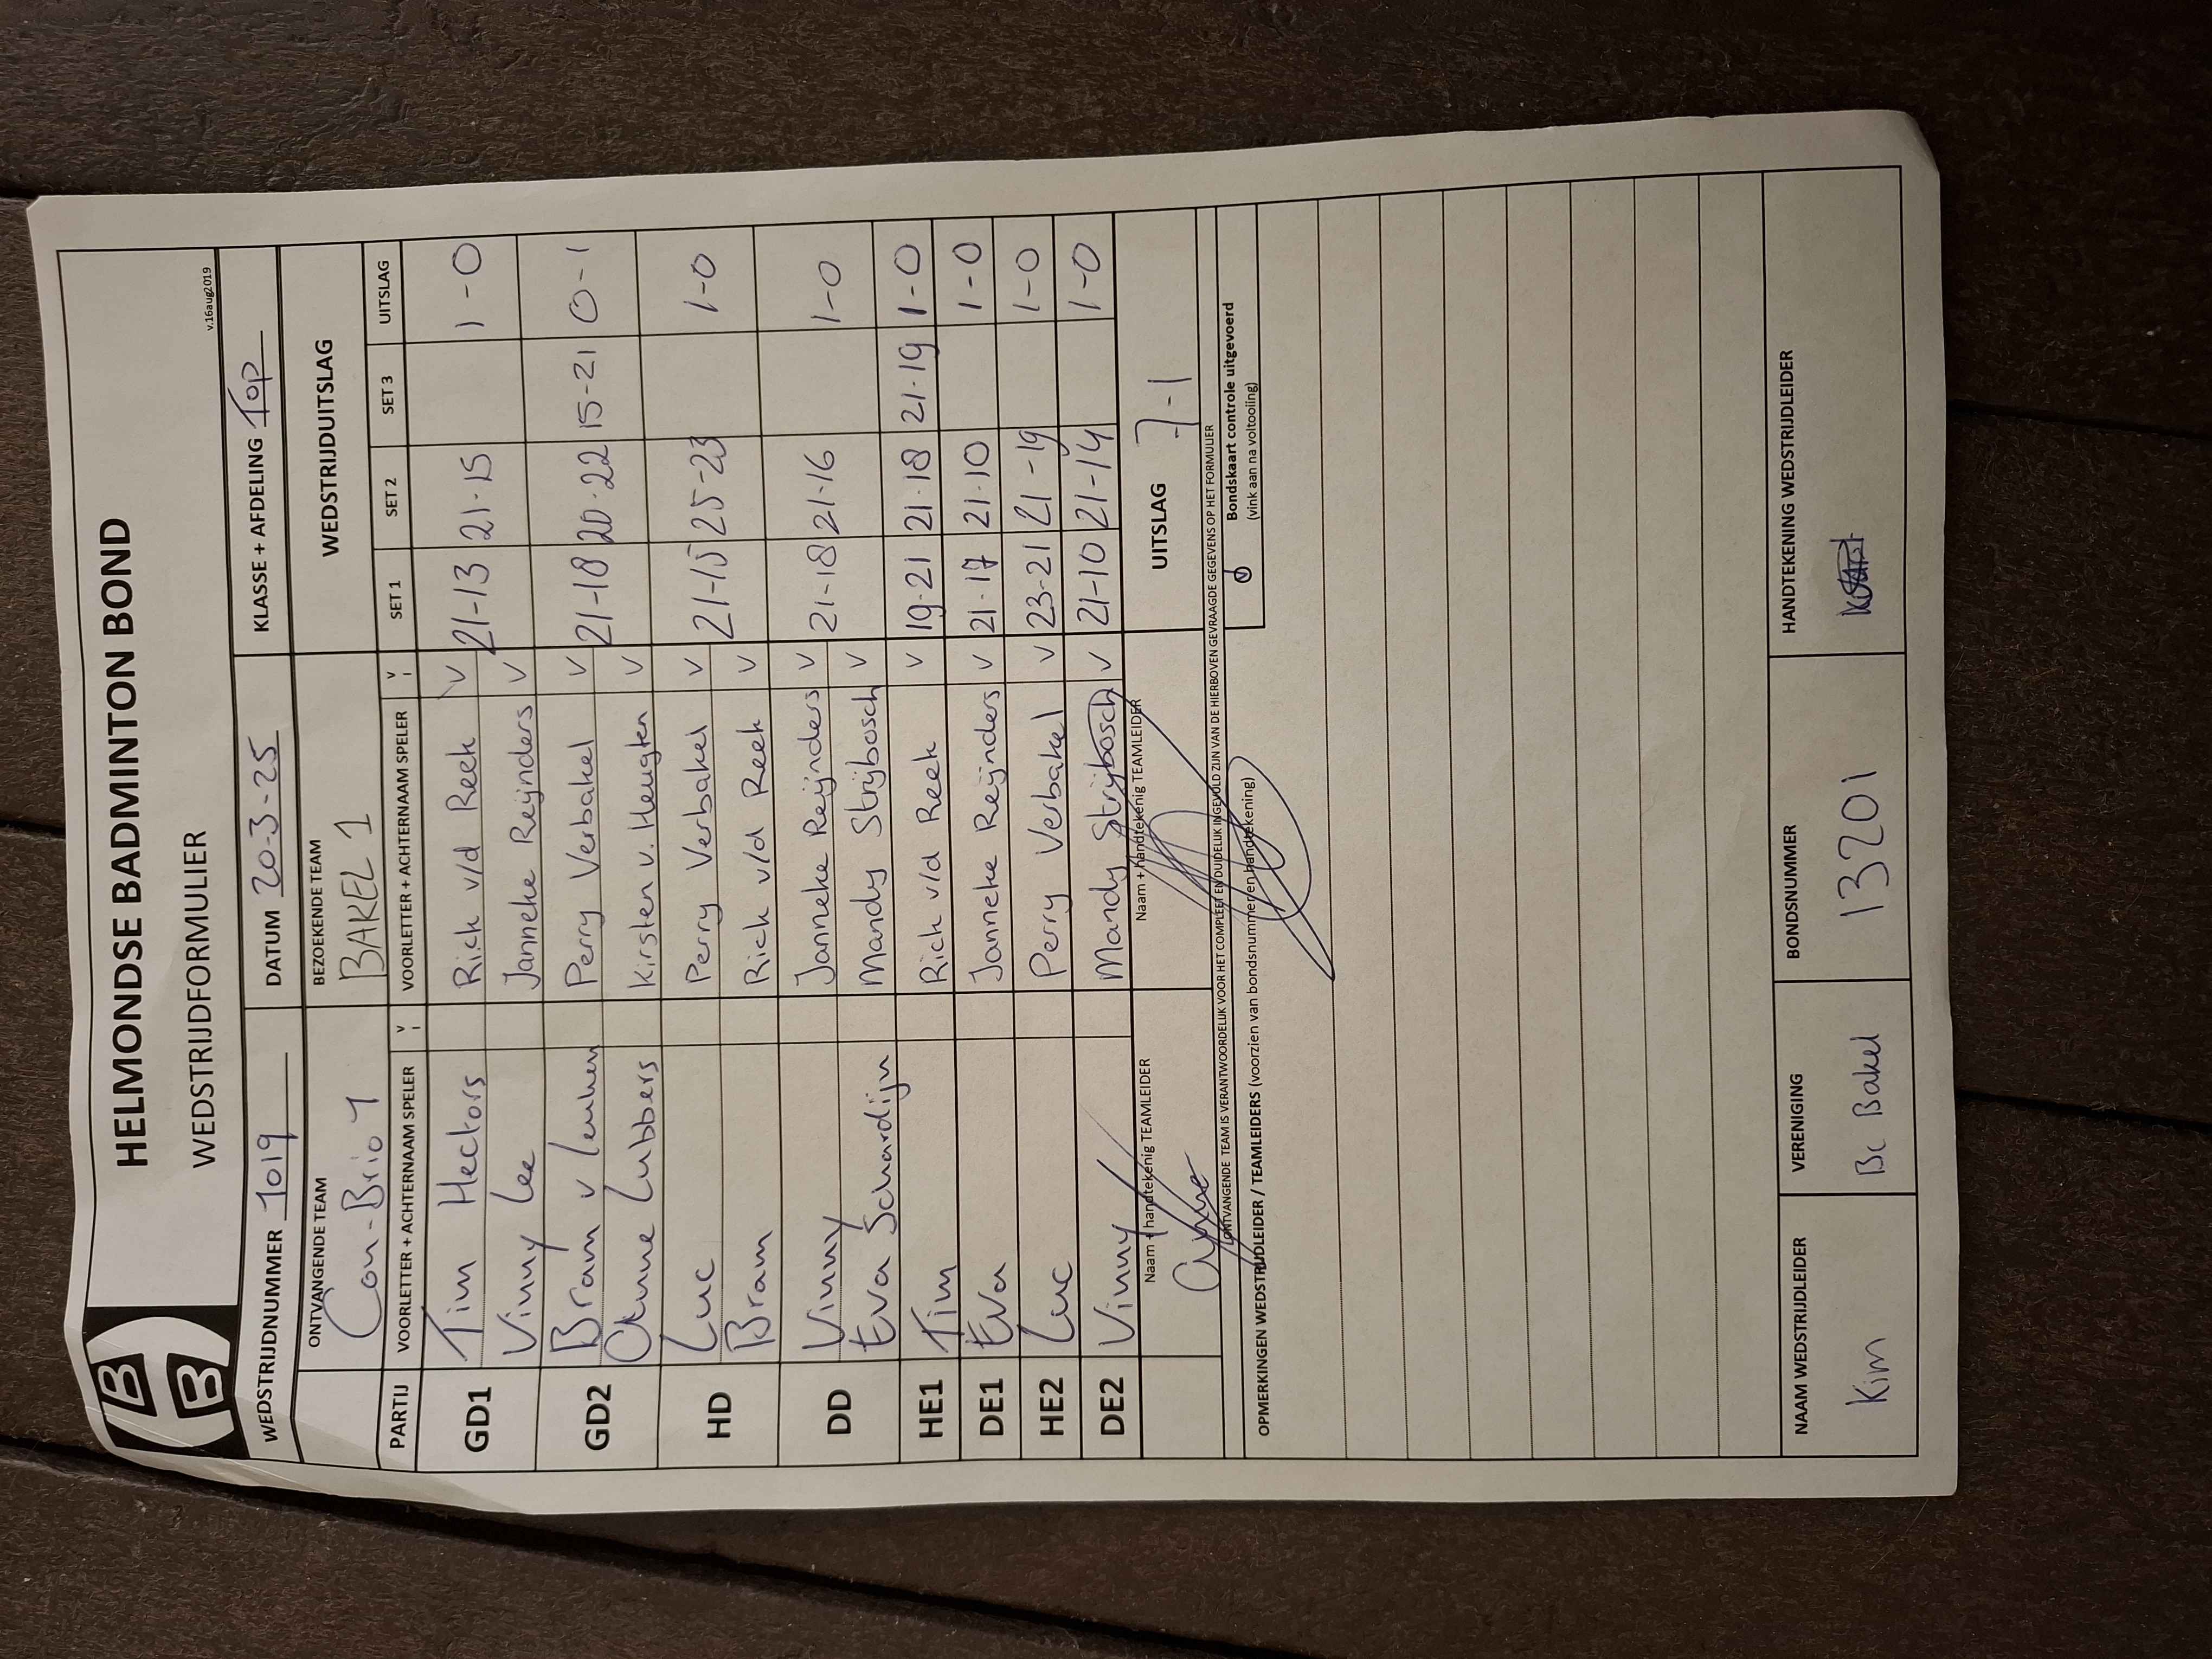 HELMONDSE BADMINTON BOND
WEDSTRIJDFORMULIER
v.16aug2019
WEDSTRIJDNUMMER 1019 DATUM 20-3-25 KLASSE + AFDELING Top
ONTVANGENDE TEAM BEZOEKENDE TEAM WEDSTRIJDUITSLAG
Con-Brio 1 BAKEL 1
PARTIJ VOORLETTER + ACHTERNAAM SPELER V VOORLETTER + ACHTERNAAM SPELER V SET 1 SET 2 SET 3 UITSLAG
GD1 Tim Hectors Rick v/d Reek V 21-13 21-15 1-0
Vinny Lee Janneke Reijnders V
GD2 Bram v Perry Verbakel V 21-18 20-22 15-21 0-1
Anne Lubbers Kirsten v. Heugten V
HD Luc Perry Verbakel V 21-15 25-23 1-0
Bram Rick v/d Reek V
DD Vinny Janneke Reijnders V 21-18 21-16 1-0
Eva Schardijn Mandy Strijbosch V
HE1 Tim Rick v/d Reek V 19-21 21-18 21-19 1-0
DE1 Eva Janneke Reijnders V 21-17 21-10 1-0
HE2 Luc Perry Verbakel V 23-21 21-19 1-0
DE2 Vinny Mandy Strijbosch V 21-10 21-14 1-0
Naam + handtekenig TEAMLEIDER Naam + handtekenig TEAMLEIDER UITSLAG 7-1
ONTVANGENDE TEAM IS VERANTWOORDELIJK VOOR HET COMPLEET EN DUIDELIJK INGEVULD ZIJN VAN DE HIERBOVEN GEVRAAGDE GEGEVENS OP HET FORMULIER
OPMERKINGEN WEDSTRIJDLEIDER / TEAMLEIDERS (voorzien van bondsnummer en handtekening)
Bondskaart controle uitgevoerd
(vink aan na voltooiing)
NAAM WEDSTRIJDLEIDER VERENIGING BONDSNUMMER HANDTEKENING WEDSTRIJDLEIDER
Kim Bc Bakel 13201